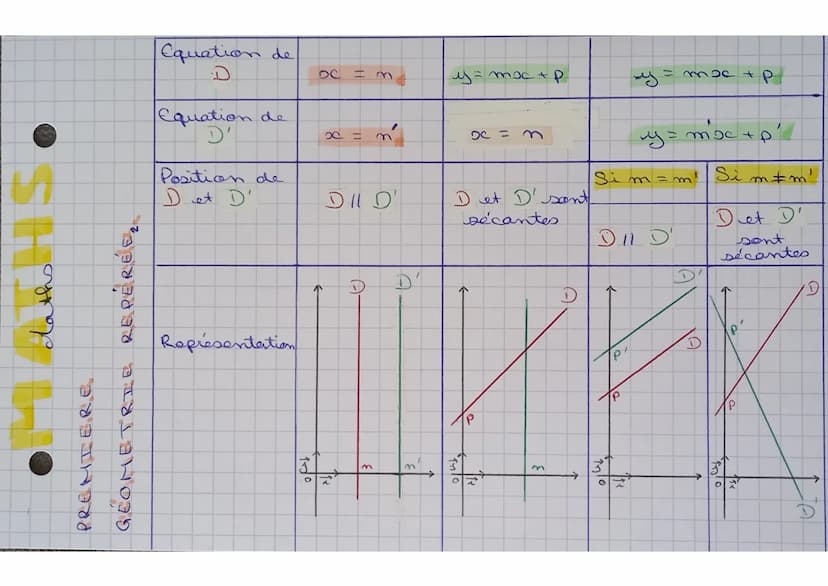 MATHS
Maths
PREMIERE
GÉOMETRIE REPÉRÉE 2
Equation de
D
x = n
y = mx + p
y = mx + p
Equation de
D'
x = n'
x = n
y = m'x + p'
Position de
D et D'
D // D'
D et D' sont
sécantes
Si m = m'
D // D'
Si m ≠ m'
D et D'
sont
sécantes
Représentation
D
D'
n
n'
j
o
i
D
p
n
j
o
i
D'
D
p'
p
j
o
i
D
p'
p
j
o
i
D'